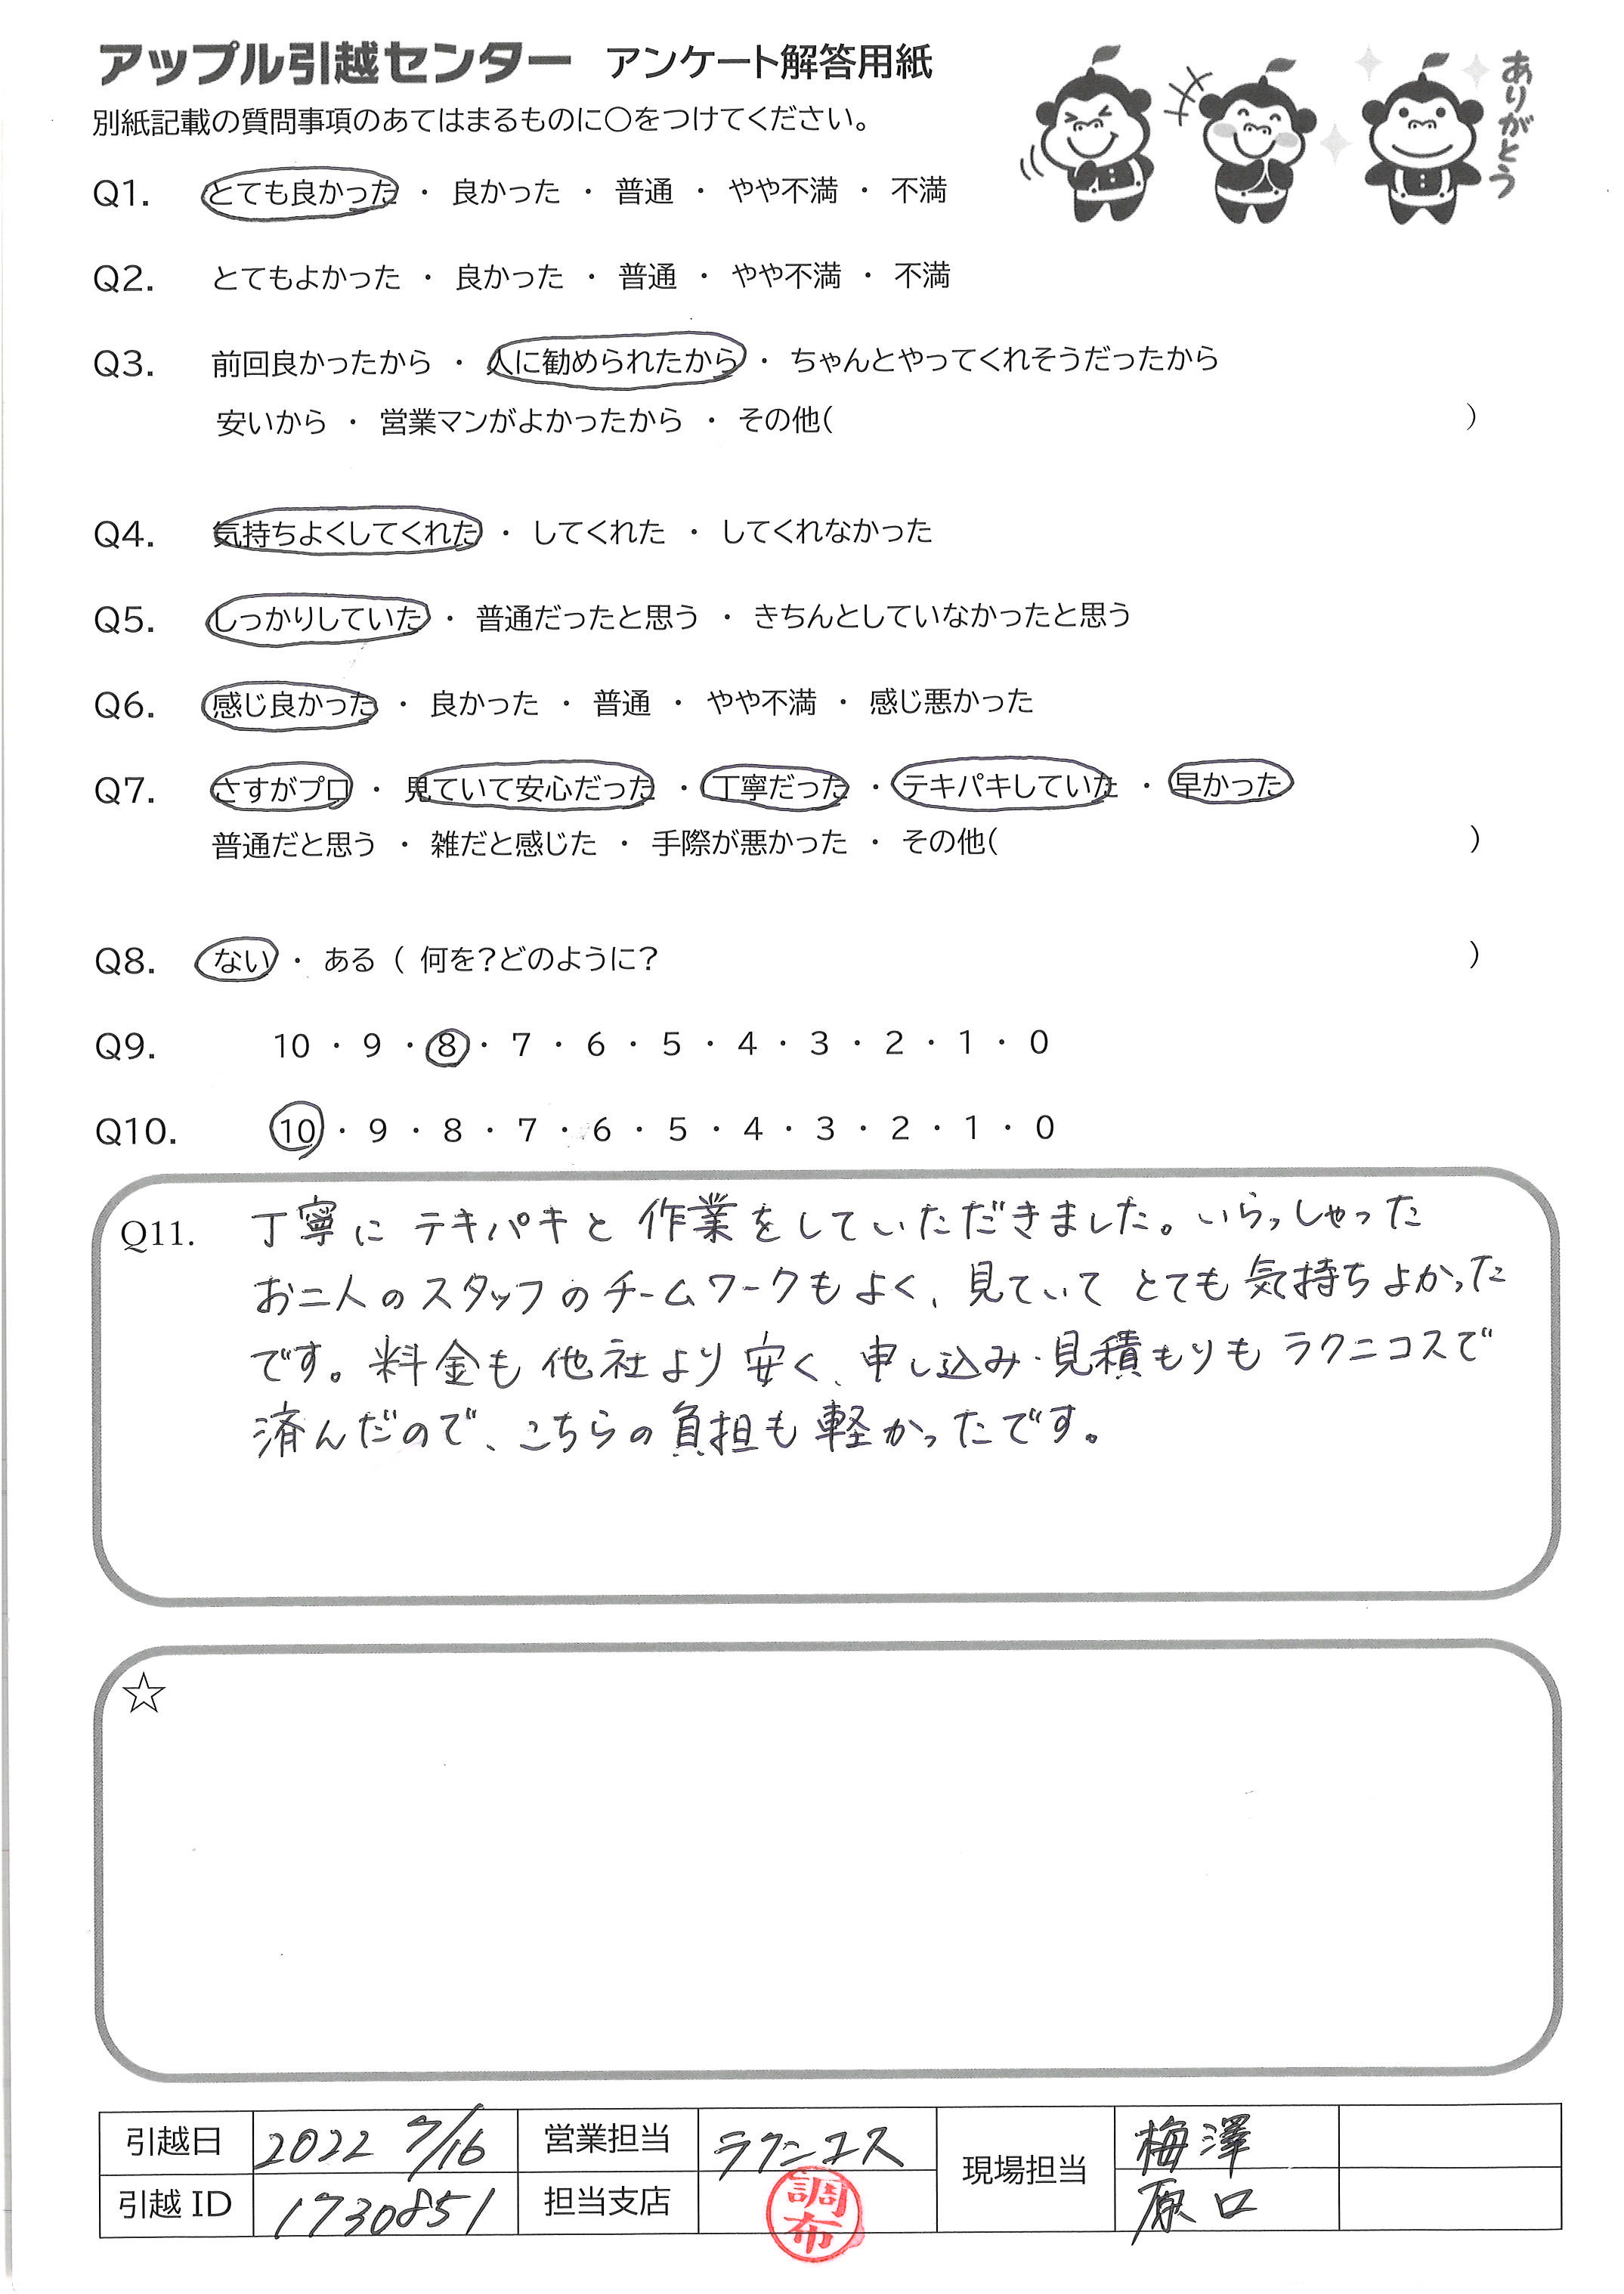 アップル引越センター アンケート解答用紙
別紙記載の質問事項のあてはまるものに○をつけてください。
ありがとう
Q1. とても良かった ・ 良かった ・ 普通 ・ やや不満 ・ 不満
Q2. とてもよかった ・ 良かった ・ 普通 ・ やや不満 ・ 不満
Q3. 前回良かったから ・ 人に勧められたから ・ ちゃんとやってくれそうだったから
安いから ・ 営業マンがよかったから ・ その他( )
Q4. 気持ちよくしてくれた ・ してくれた ・ してくれなかった
Q5. しっかりしていた ・ 普通だったと思う ・ きちんとしていなかったと思う
Q6. 感じ良かった ・ 良かった ・ 普通 ・ やや不満 ・ 感じ悪かった
Q7. さすがプロ ・ 見ていて安心だった ・ 丁寧だった ・ テキパキしていた ・ 早かった
普通だと思う ・ 雑だと感じた ・ 手際が悪かった ・ その他( )
Q8. ない ・ ある ( 何を?どのように? )
Q9. 10 ・ 9 ・ 8 ・ 7 ・ 6 ・ 5 ・ 4 ・ 3 ・ 2 ・ 1 ・ 0
Q10. 10 ・ 9 ・ 8 ・ 7 ・ 6 ・ 5 ・ 4 ・ 3 ・ 2 ・ 1 ・ 0
Q11. 丁寧に テキパキと 作業をしていただきました。いらっしゃった
お二人のスタッフのチームワークもよく、見ていて とても気持ちよかった
です。料金も他社より安く、申し込み・見積もりも ラクニコスで
済んだので、こちらの負担も軽かったです。
☆
引越日 2022 7/16 営業担当 ラクニコス 現場担当 梅澤
引越 ID 1730851 担当支店 調布 原口